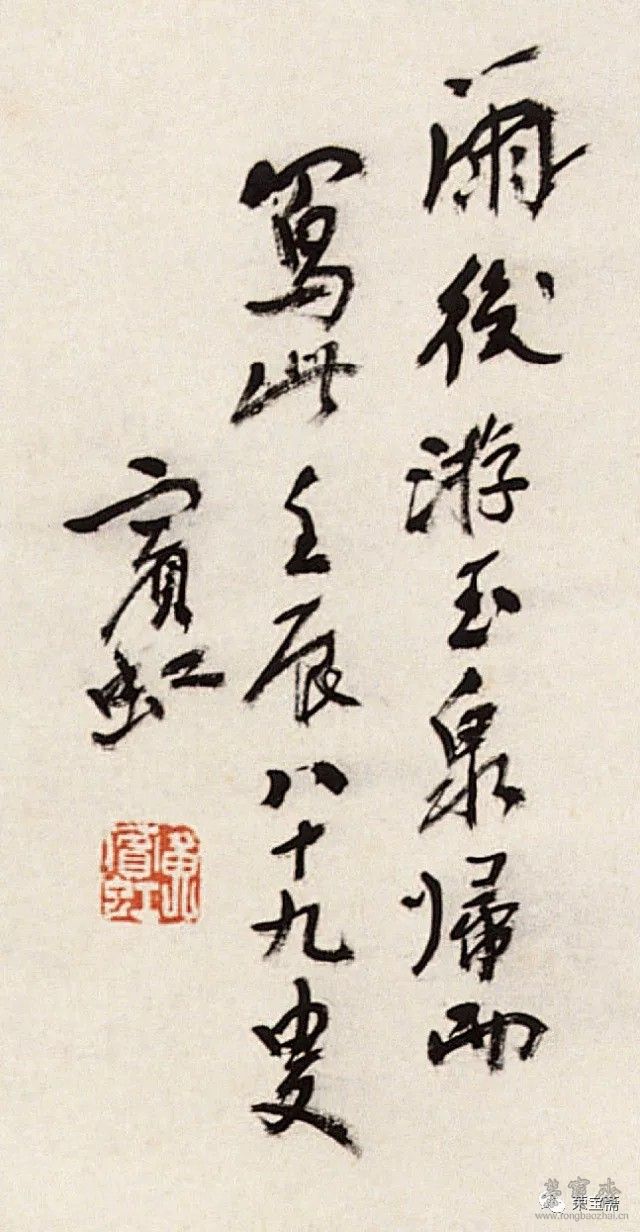 雨後游玉泉歸而
寫此壬辰八十九叟
賓虹
黃賓虹
榮寶齋
荣宝斋
www.rongbaozhai.cn